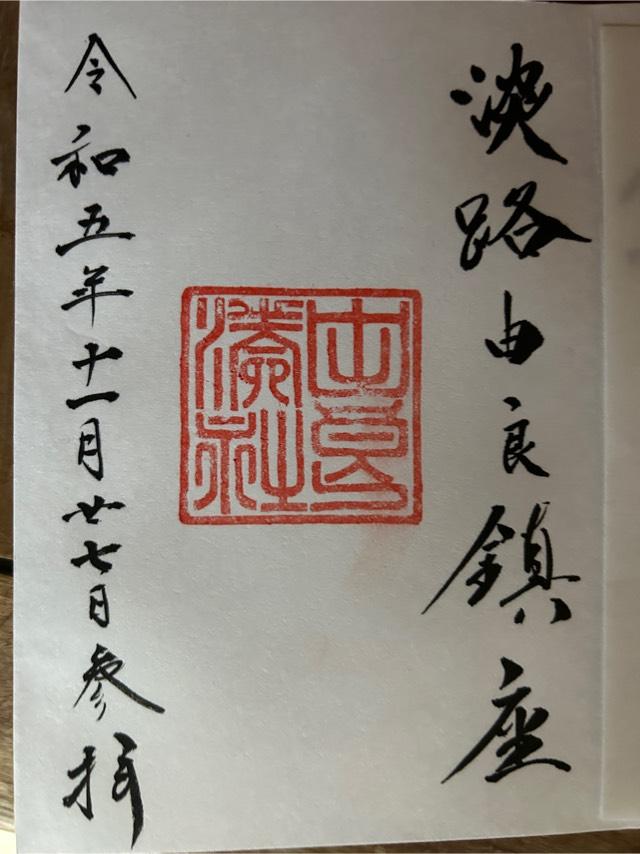 淡路由良鎮座
由良
湊社
令和五年十一月廿七日参拝